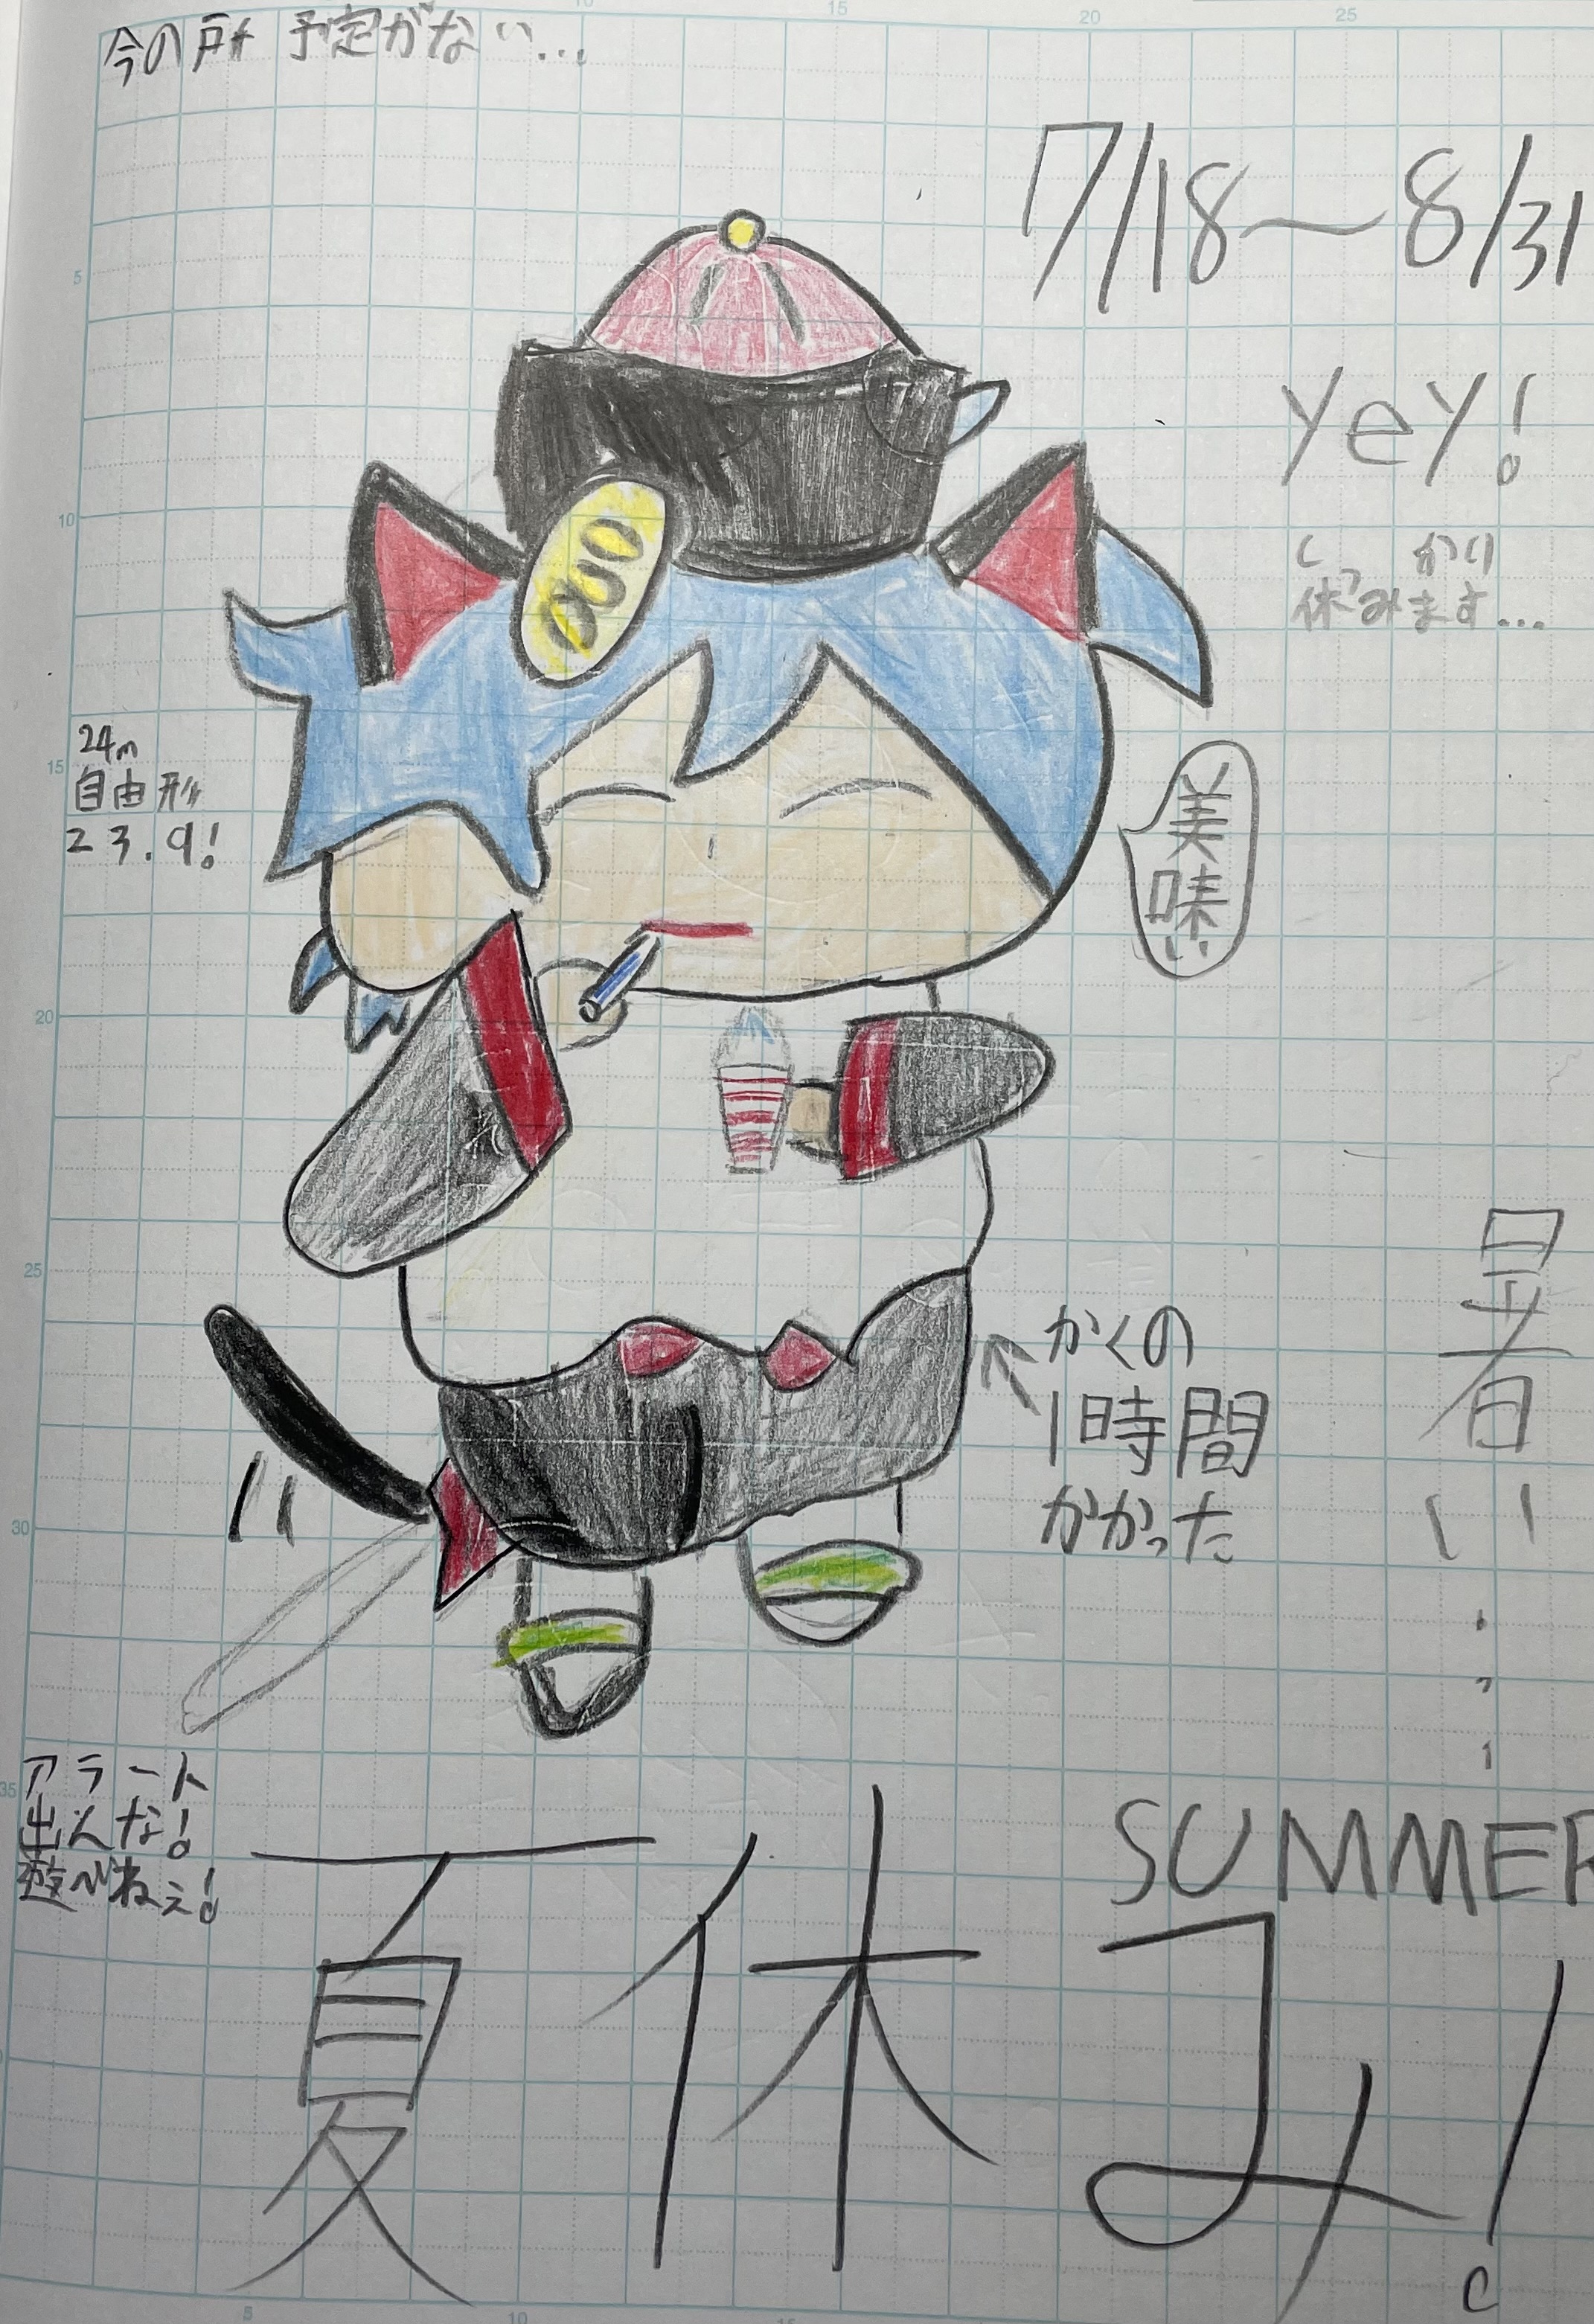 今の所 予定がない...
7/18〜8/31
yey!
しっかり
休みます...
24m
自由形
23.9!
美味い
かくの
1時間
かかった
暑い...
アラート
出んな!
遊べねぇ!
SUMMER
夏休み!